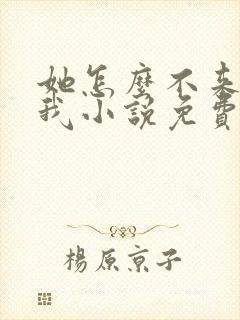 她怎麼不來
我小說免費
楊原京子